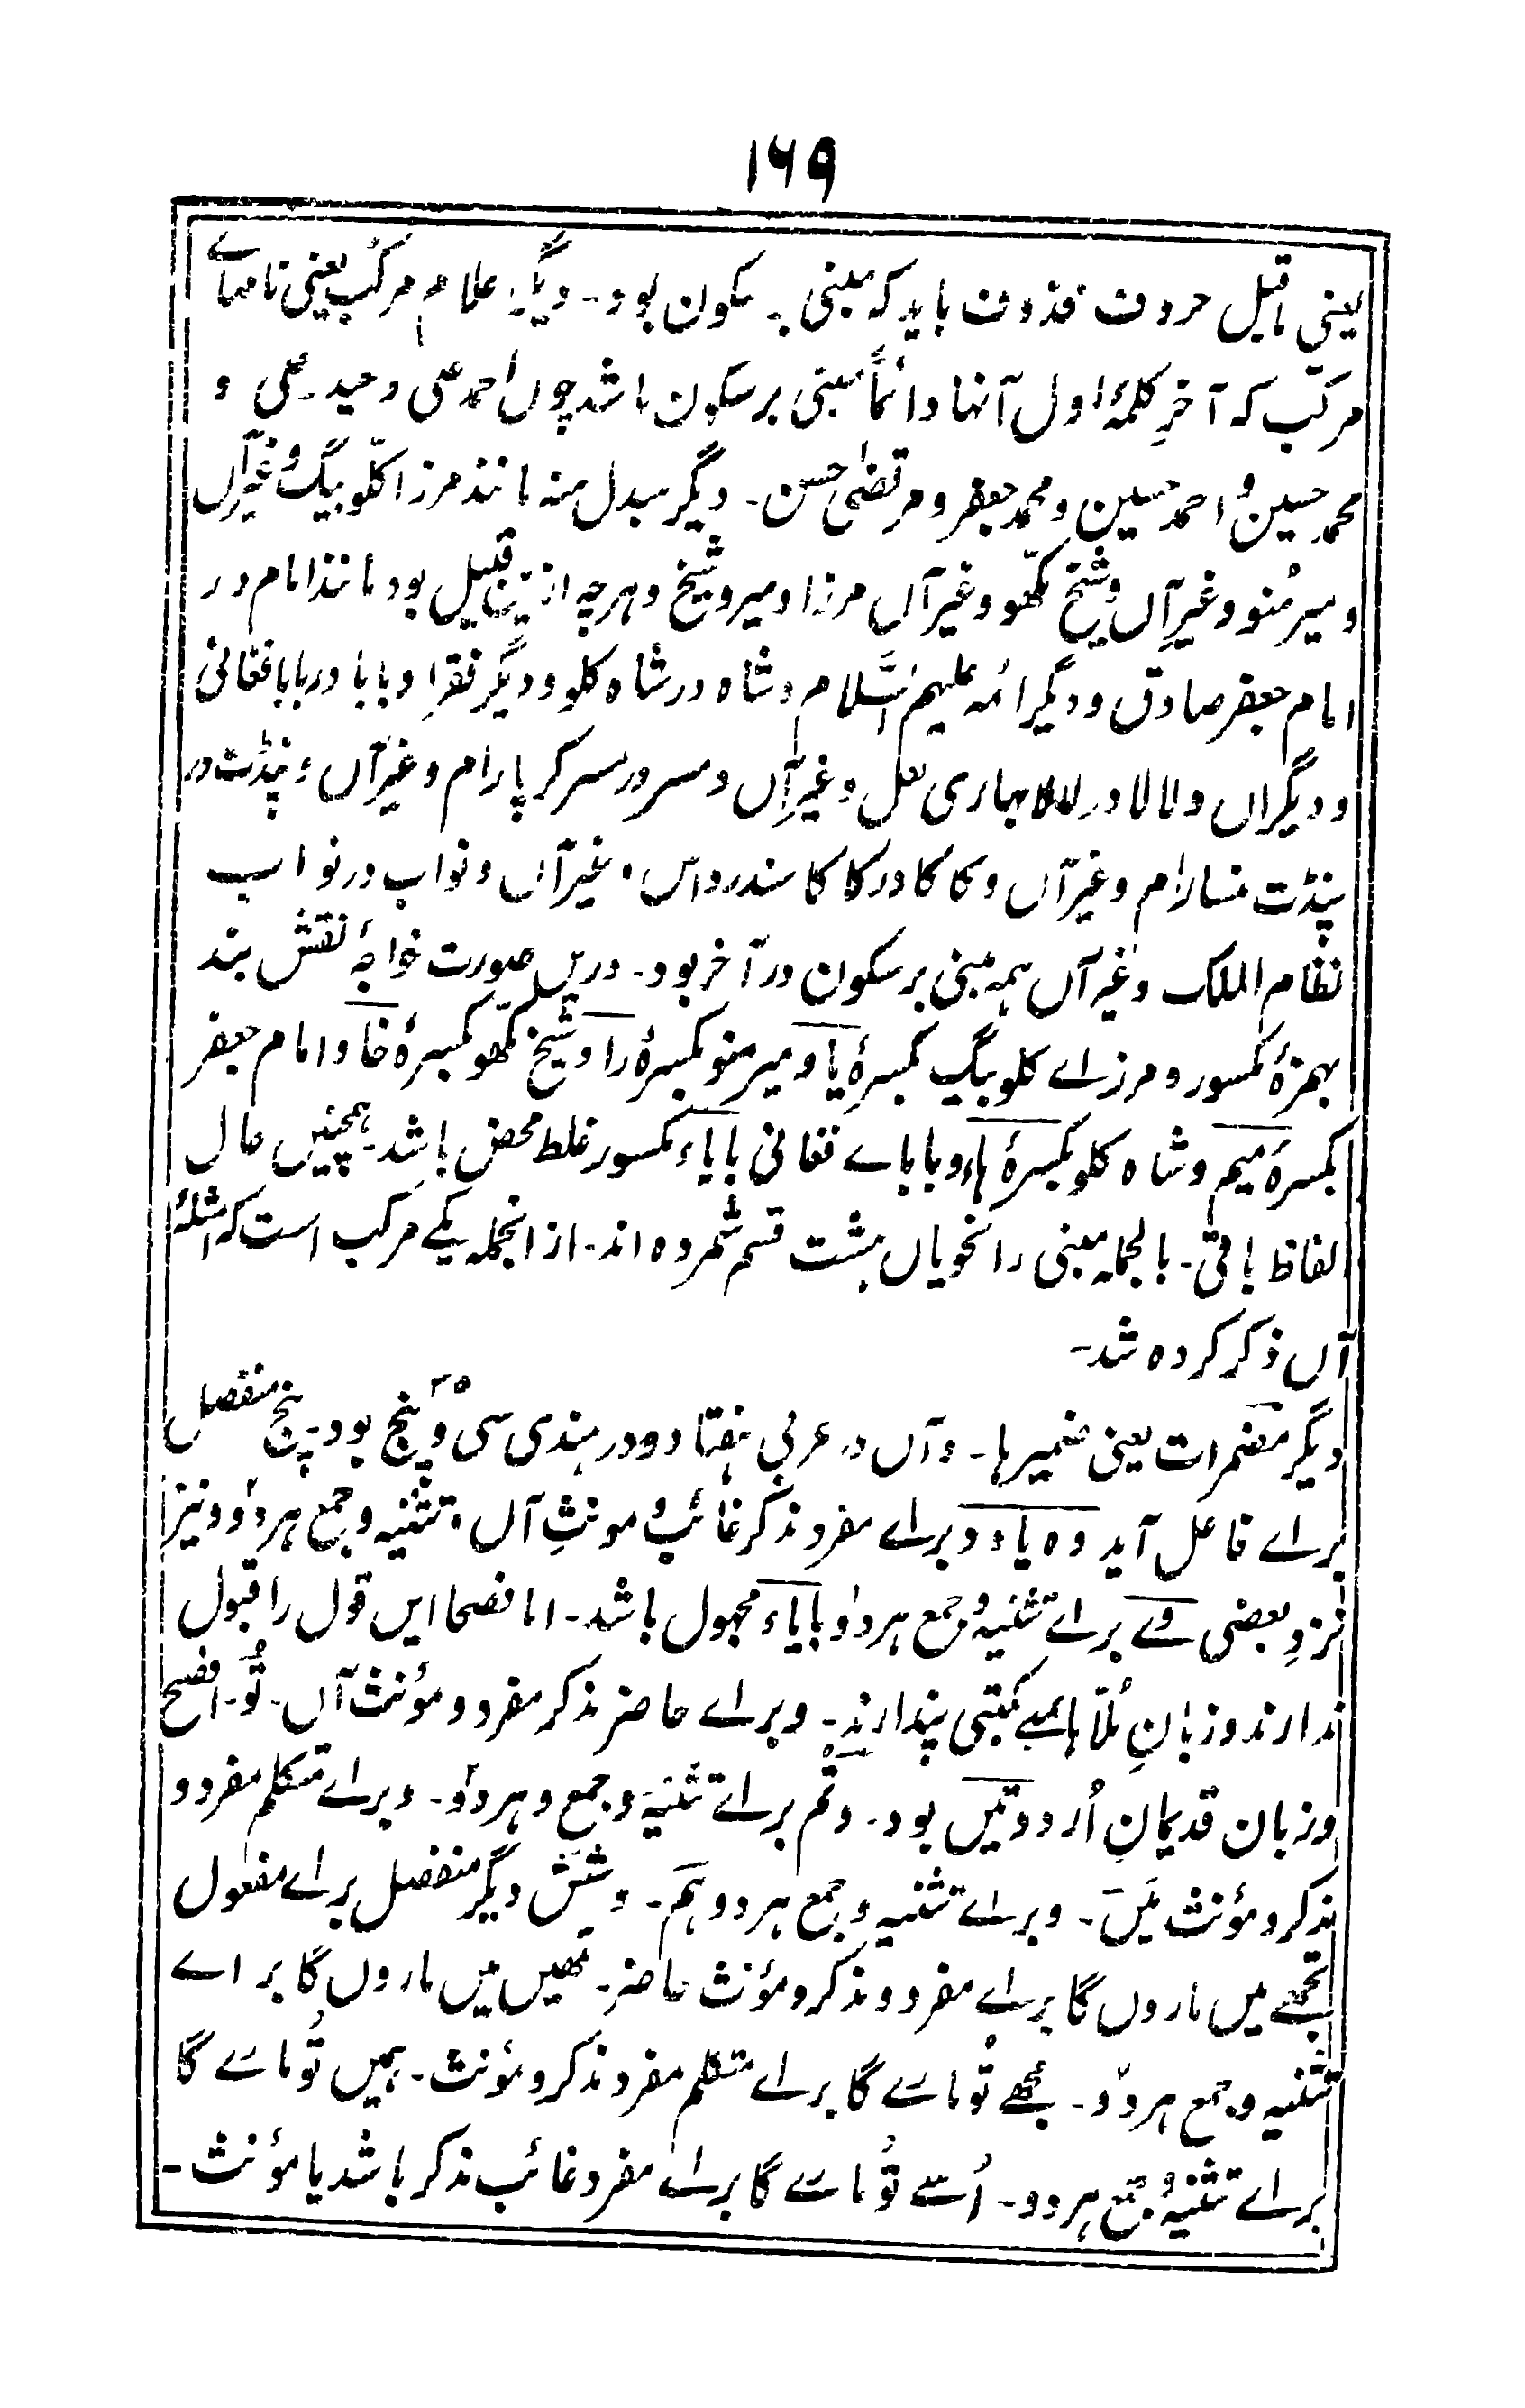 ۱۶۹
یعنی ماقبل حروف محذوف باید کہ مبنی بہ سکون بود۔ دیگر علام مرکب یعنی نامہاے
مرکب کہ آخرِ کلمۂ اول آنہا دائماً مبنی بر سکون باشد چوں احمد علی و حیدر علی و
محمد حسین و احمد حسین و محمد جعفر و مرتضیٰ حسن۔ دیگر مبدل منہ مانند مرزا کلّو بیگ و غیرآں
و میر مُنو و غیرِ آں و شیخ مکھّو و غیر آں مرزا و میر و شیخ و ہرچہ ازیں قبیل بود مانند امام در
امام جعفر صادق و دیگر ائمہ علیہم السّلام و شاہ در شاہ کلو و دیگر فقرا و بابا در بابا فغانی
و دیگراں و لالا در لالا بہاری لعل و غیرِ آں و مسر در مسر کرپا رام و غیرآں و پنڈت در
پنڈت منسارام و غیر آں و کاکا در کاکا سندر داس و غیر آں و نواب در نواب
نظام الملک و غیر آں ہمہ مبنی بر سکون در آخر بود۔ دریں صورت خواجۂ نقش بند
بہمزۂ مکسور و مرزاے کلو بیگ بکسرۂ یا و میر منو بکسرۂ را و شیخ مکھّو بکسرۂ خا و امام جعفر
بکسرۂ میم و شاہ کلو بکسرۂ ہا و باباے فغانی بایاء مکسور غلط محض باشد۔ ہمچنیں حال
الفاظ باقی۔ بالجملہ مبنی را نحویاں ہشت قسم شمردہ اند۔ ازانجملہ یکے مرکب است کہ امثلۂ
آں ذکر کردہ شد۔
دیگر مضمرات یعنی ضمیرہا۔ و آں در عربی ہفتاد و در ہندی سی و پنج ۳۵ بود۔ پنج منفصل
براے فاعل آید وہ یاء و و براے مفرد مذکر غائب و مونثِ آں و تثنیہ و جمع ہر دو و نیز
نزدِ بعضی وے براے تثنیہ و جمع ہر دو با یاء مجہول باشد۔ اما فصحا ایں قول را قبول
ندارند و زبانِ مُلّا ہاے مکتبی پندارند۔ و براے حاضر مذکر مفرد و مؤنث آں۔ تُو۔ افصح
و زبان قدیمانِ اُردو تئیں بود۔ و تم براے تثنیہ و جمع و ہر دو۔ و براے متکلم مفرد و
مذکر و مؤنث مَیں۔ و براے تثنیہ و جمع ہر دو ہَم۔ و شش دیگر منفصل براے مفعول
تجھے میں ماروں گا براے مفرد و مذکر و مؤنث حاضر۔ تمھیں میں ماروں گا براے
تثنیہ و جمع ہر دو۔ مجھے تُو مارے گا براے متکلم مفرد مذکر و مؤنث۔ ہمیں تُو مارے گا
براے تثنیہ و جمع ہر دو۔ اُسے تُو مارے گا براے مفرد غائب مذکر باشد یا مؤنث۔